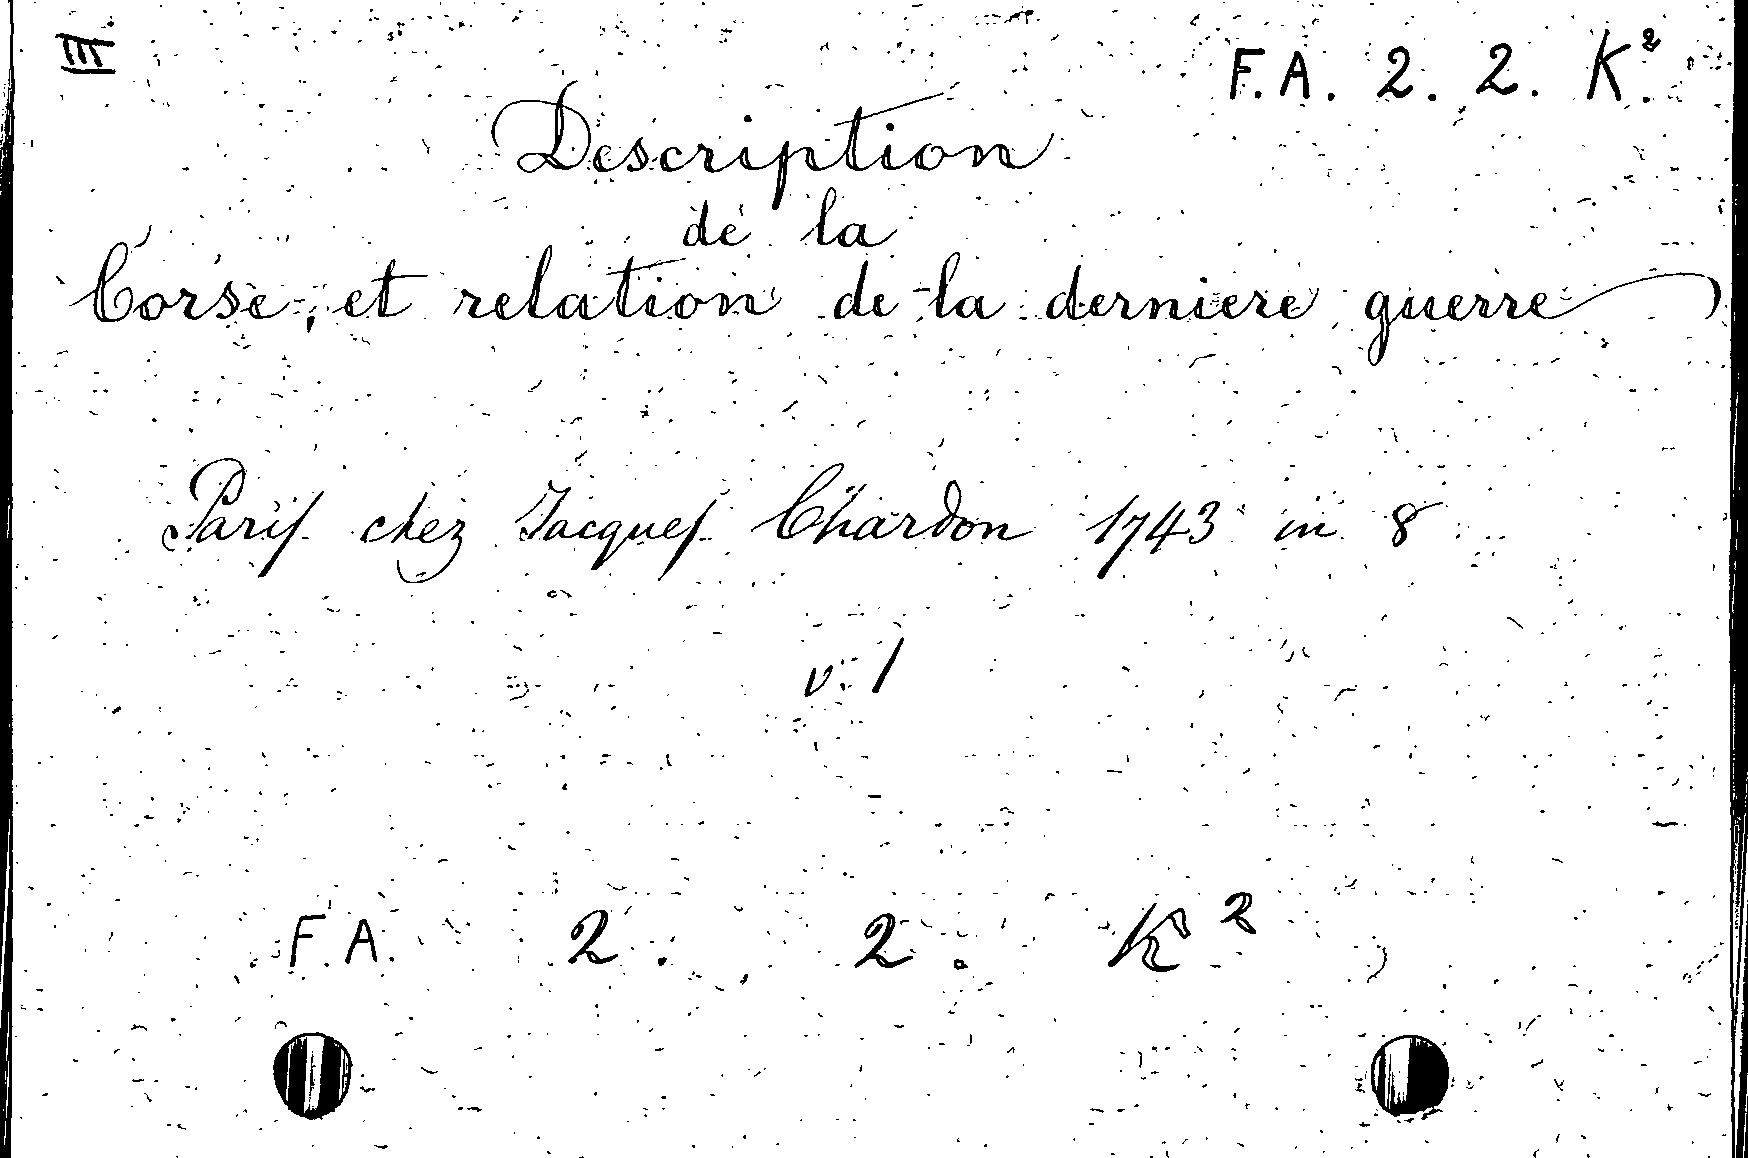 III
F.A. 2. 2. K²
Description
de la
Corse, et relation de la derniere guerre
Paris chez Jacques Chardon 1743 in 8
v. 1
F.A. 2. 2. K²